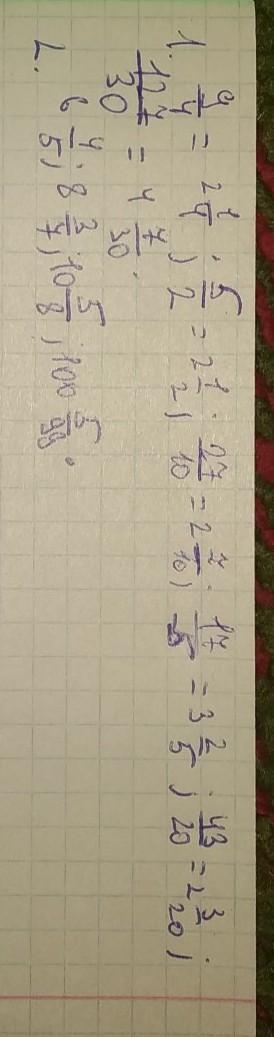 1. 9/4 = 2 1/4; 5/2 = 2 1/2; 27/10 = 2 7/10; 17/5 = 3 2/5; 43/20 = 2 3/20;
127/30 = 4 7/30.
2. 6 4/5; 8 3/7; 10 5/8; 100 5/99.